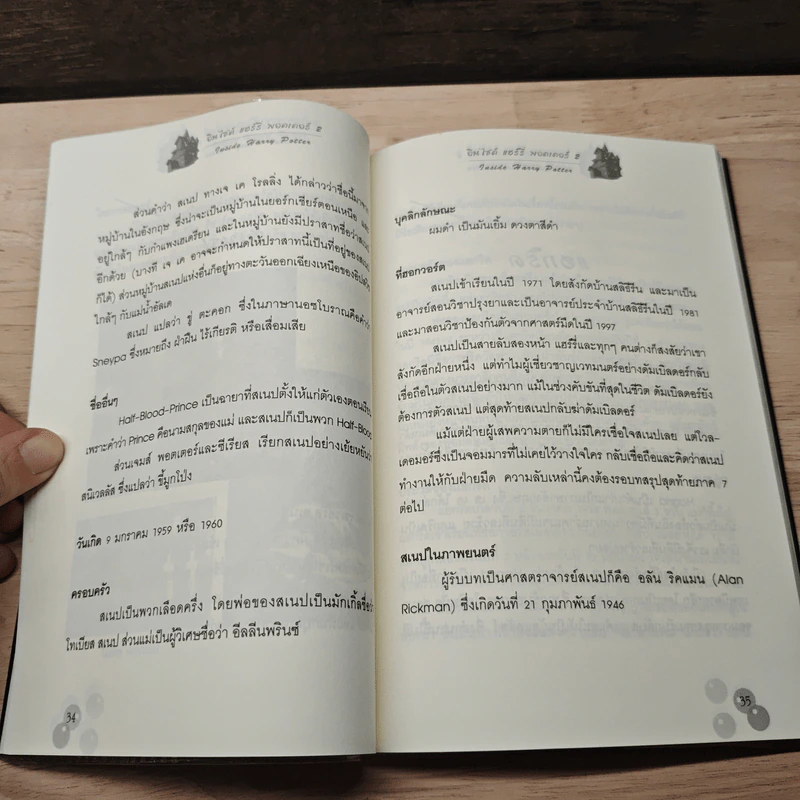 อินไซด์ แฮร์รี่ พอตเตอร์ 2
Inside Harry Potter
ส่วนคำว่า สเนป ทางเจ เค โรลลิ่ง ได้กล่าวว่าชื่อนี้มาจาก
หมู่บ้านในอังกฤษ ซึ่งน่าจะเป็นหมู่บ้านในยอร์กเชียร์ตอนเหนือ และ
อยู่ใกล้ๆ กับกำแพงเฮเดรียน และในหมู่บ้านยังมีปราสาทชื่อว่าสเนป
อีกด้วย (บางที เจ เค อาจจะกำหนดให้ปราสาทนี้เป็นที่อยู่ของสเนป
ก็ได้) ส่วนหมู่บ้านสเนปแห่งอื่นก็อยู่ทางตะวันออกเฉียงเหนือของ
ใกล้ๆ กับแม่น้ำอัลเด
สเนป แปลว่า ขู่ ตะคอก ซึ่งในภาษานอชโบราณคือคำว่า
Sneypa ซึ่งหมายถึง ฝ่าฝืน ไร้เกียรติ หรือเสื่อมเสีย
ชื่ออื่นๆ
Half-Blood-Prince เป็นฉายาที่สเนปตั้งให้แก่ตัวเองตอนเรียน
เพราะคำว่า Prince คือนามสกุลของแม่ และสเนปก็เป็นพวก Half-Blood
ส่วนเจมส์ พอตเตอร์และซีเรียส เรียกสเนปอย่างเย้ยหยันว่า
สนิเวลลัส ซึ่งแปลว่า ขี้มูกโป่ง
วันเกิด 9 มกราคม 1959 หรือ 1960
ครอบครัว
สเนปเป็นพวกเลือดครึ่ง โดยพ่อของสเนปเป็นมักเกิ้ลชื่อว่า
โทเบียส สเนป ส่วนแม่เป็นผู้วิเศษชื่อว่า อีลลีนพรินซ์
34
อินไซด์ แฮร์รี่ พอตเตอร์ 2
Inside Harry Potter
บุคลิกลักษณะ
ผมดำ เป็นมันเยิ้ม ดวงตาสีดำ
ที่ฮอกวอร์ต
สเนปเข้าเรียนในปี 1971 โดยสังกัดบ้านสลิธีริน และมาเป็น
อาจารย์สอนวิชาปรุงยาและเป็นอาจารย์ประจำบ้านสลิธีรินในปี 1981
และมาสอนวิชาป้องกันตัวจากศาสตร์มืดในปี 1997
สเนปเป็นสายลับสองหน้า แฮร์รี่และทุกๆ คนต่างก็สงสัยว่าเขา
สังกัดอีกฝ่ายหนึ่ง แต่ทำไมผู้เชี่ยวชาญเวทมนตร์อย่างดัมเบิลดอร์กลับ
เชื่อถือในตัวสเนปอย่างมาก แม้ในช่วงคับขันที่สุดในชีวิต ดัมเบิลดอร์ยัง
ต้องการตัวสเนป แต่สุดท้ายสเนปกลับฆ่าดัมเบิลดอร์
แม้แต่ฝ่ายผู้เสพความตายก็ไม่มีใครเชื่อใจสเนปเลย แต่โวล-
เดอมอร์ซึ่งเป็นจอมมารที่ไม่เคยไว้วางใจใคร กลับเชื่อถือและคิดว่าสเนป
ทำงานให้กับฝ่ายมืด ความลับเหล่านี้คงต้องรอบทสรุปสุดท้ายภาค 7
ต่อไป
สเนปในภาพยนตร์
ผู้รับบทเป็นศาสตราจารย์สเนปก็คือ อลัน ริคแมน (Alan
Rickman) ซึ่งเกิดวันที่ 21 กุมภาพันธ์ 1946
35